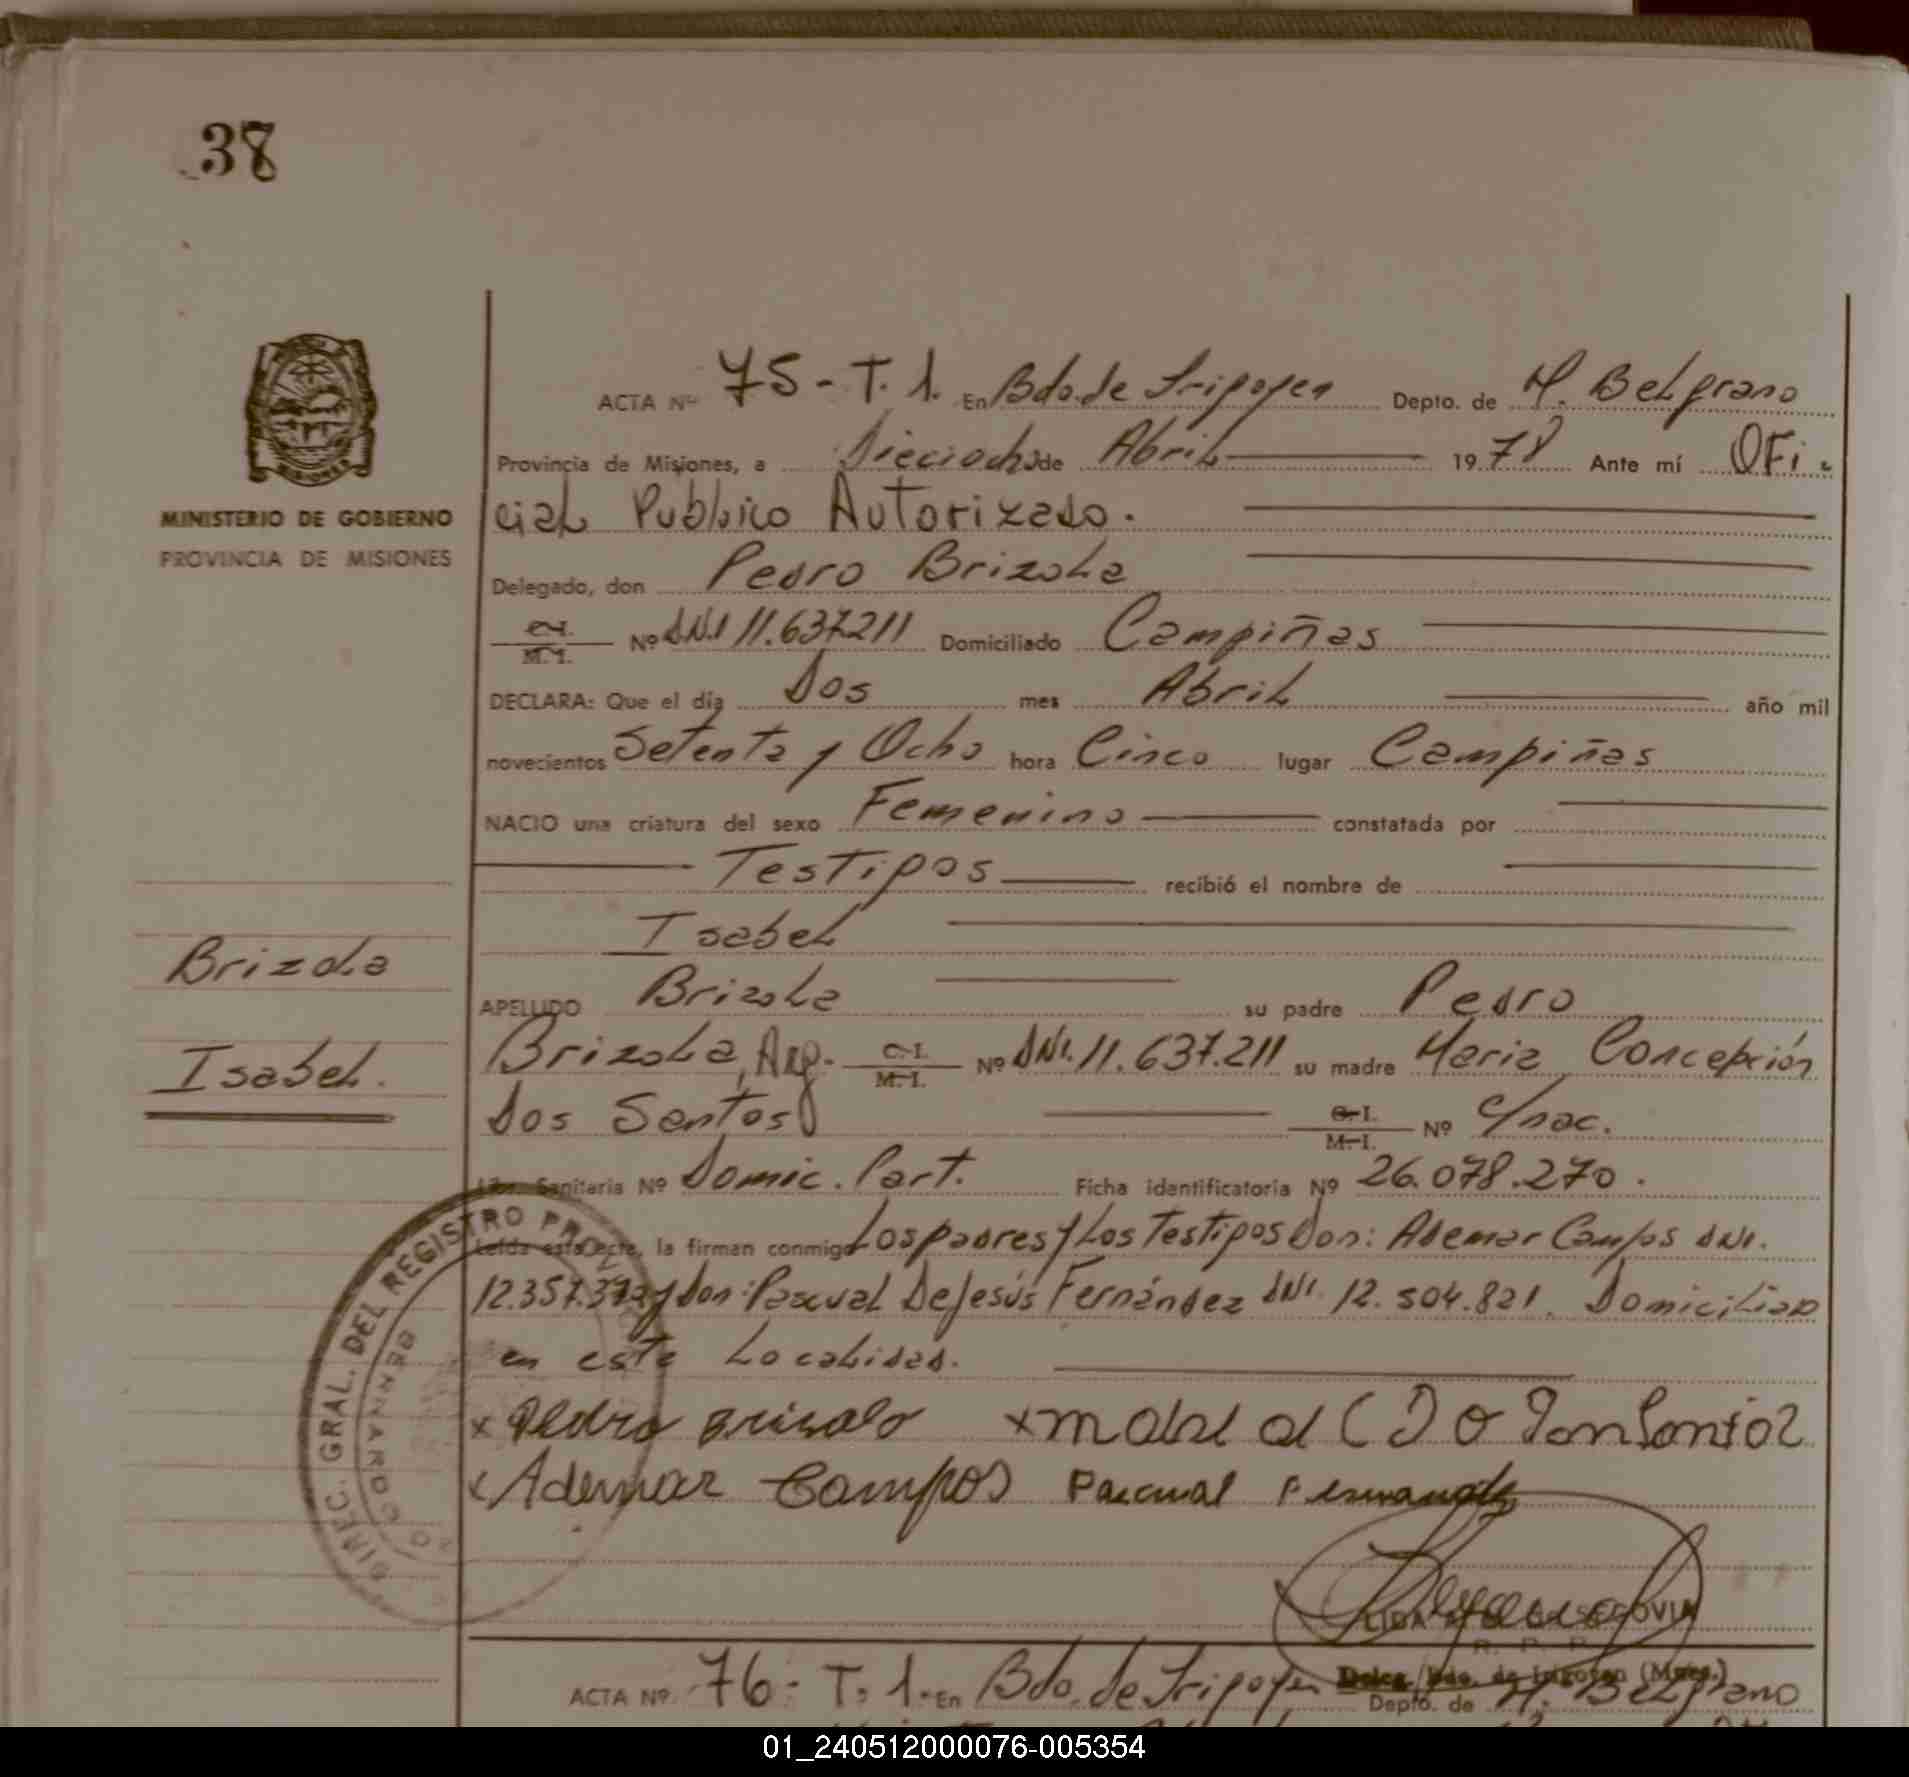 38
ACTA Nº 75 - T. 1. En Bdo. de Irigoyen Depto. de M. Belgrano
Provincia de Misiones, a Dieciocho de Abril 1978 Ante mí OFi-
MINISTERIO DE GOBIERNO
PROVINCIA DE MISIONES
cial Publico Autorizado.
Delegado, don Pedro Brizola
C.I. M.I. Nº DNI 11.637.211 Domiciliado Campiñas
DECLARA: Que el día Dos mes Abril año mil
novecientos Setenta y Ocho hora Cinco lugar Campiñas
NACIO una criatura del sexo Femenino constatada por
Testigos recibió el nombre de
Isabel
Brizola
Isabel.
APELLIDO Brizola su padre Pedro
Brizola, Arg. C.I. M.I. Nº DNI. 11.637.211 su madre Maria Concepción
Dos Santos C.I. M.I. Nº c/nac.
Lib. Sanitaria Nº Domic. Part. Ficha identificatoria Nº 26.078.270.
Leída esta acta, la firman conmigo Los padres y Los Testigos Don: Ademar Campos DNI.
12.357. y Don: Pascual De Jesús Fernández DNI. 12.504.821. Domiciliad
en esta Localidad.
x Pedro Brisola x
x Ademar Campos Pascual Fernandez
DIREC. GRAL. DEL REGISTRO PROVINC
BERNARDO DE
SEGOVIA
R. P. P.
Deleg. Bdo. de Irigoyen (Mnes.)
ACTA Nº 76 - T. 1. En Bdo. de Irigoyen Depto. de M. Belgrano
01_240512000076-005354